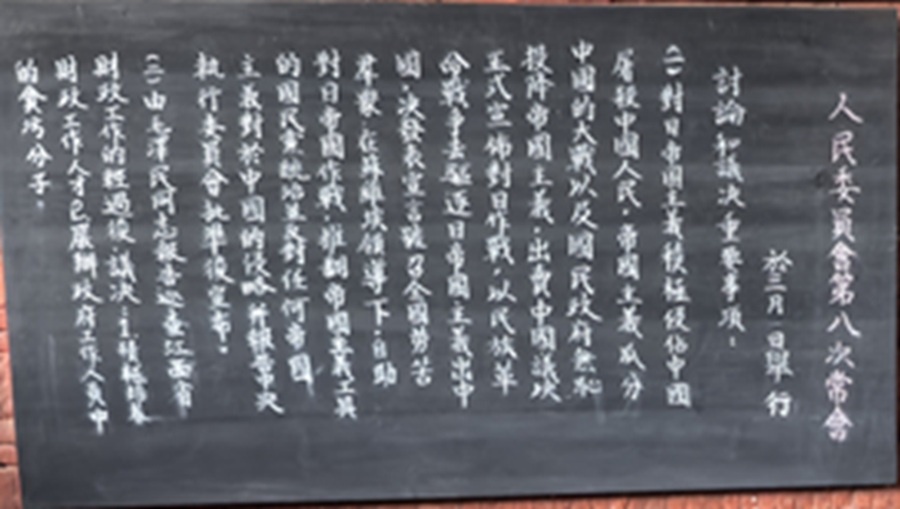 人民委員會第八次常會
於三月一日舉行
討論和議决重要事項：
(一)對日帝国主義積極侵佔中國
屠殺中國人民，帝國主義瓜分
中國的大戰以及國民政府無恥
投降帝國主義，出賣中國議决
正式宣佈對日作戰，以民族革
命戰爭去驅逐日帝國主義出中
國，决發表宣言號召全國勞苦
羣眾在蘇維埃領導下，自動
對日帝國作戰，推翻帝國主義工具
的國民黨統治並反對任何帝國
主義對於中國的侵略，
執行委員會批準後宣布。
(二)由毛澤民同志報告巡查江西省
財政工作的經過後，議决：
財政工作人才已展辦政府工作人員中
的貪污分子。